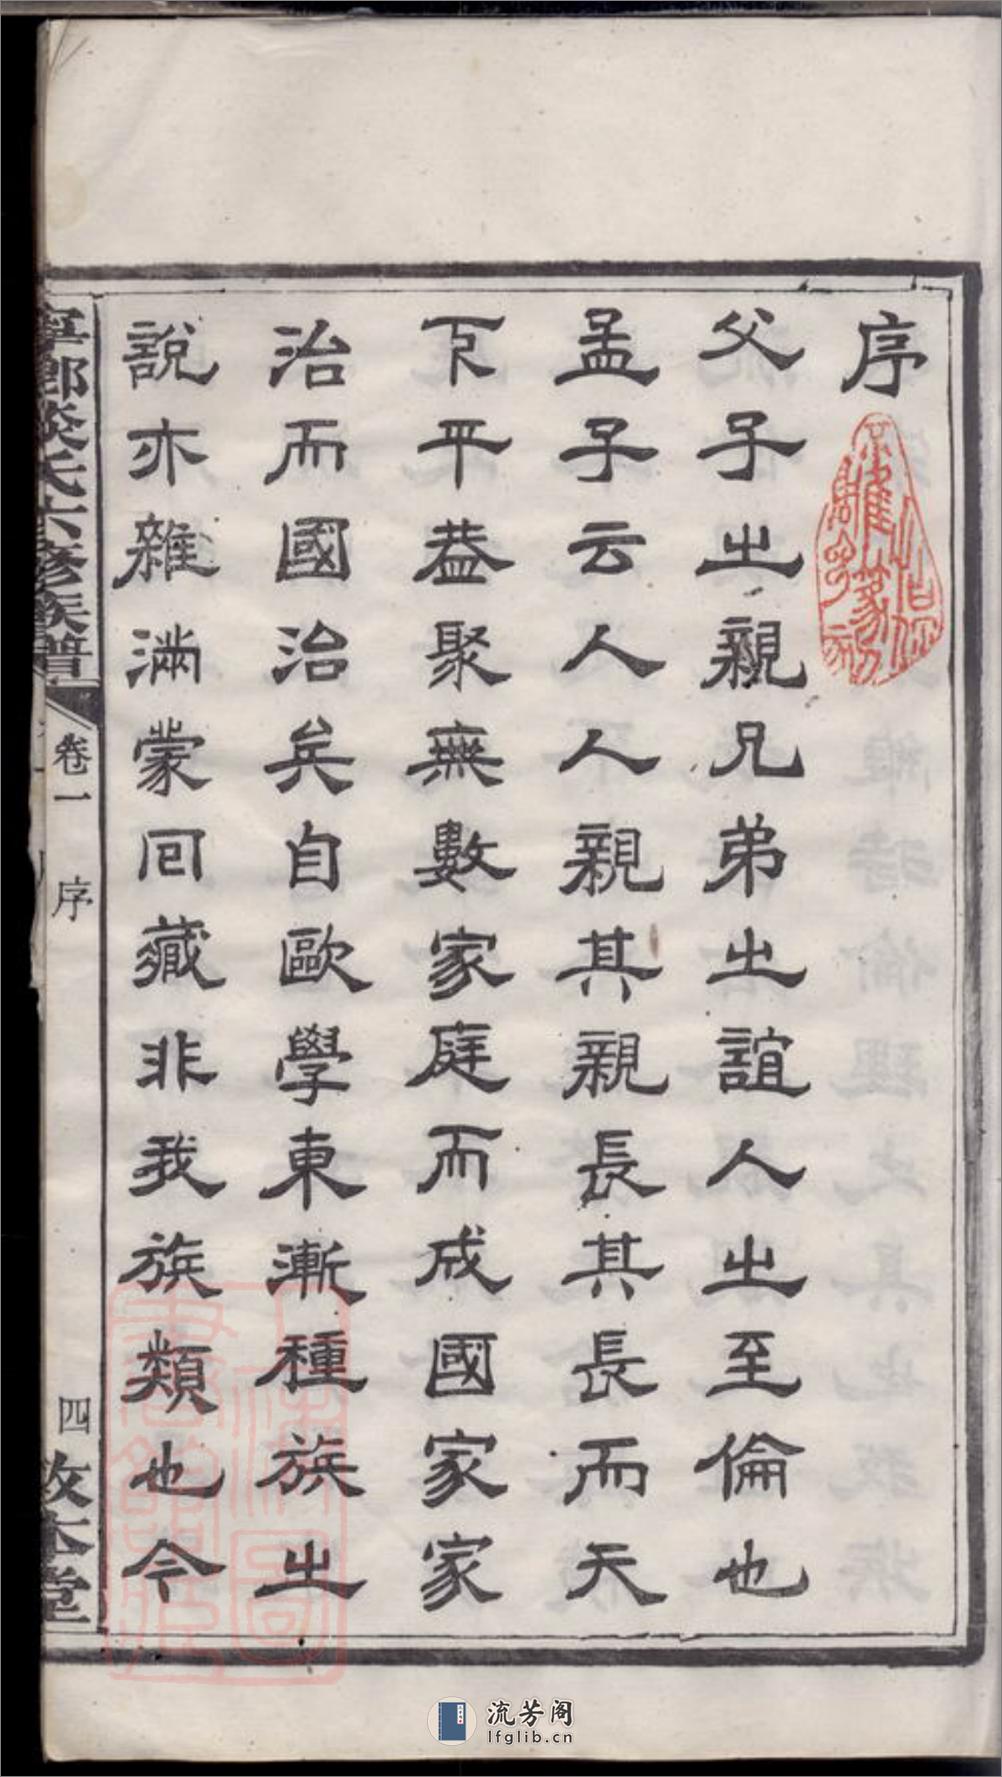 序
父子之親兄弟之誼人之至倫也
孟子云人人親其親長其長而天
下平蓋聚無數家庭而成國家家
治而國治矣自歐學東漸種族之
說亦雜滿蒙回藏非我族類也今
寧鄉談氏六修族譜
卷一
序
四
敦本堂
流芳阁
lfglib.cn